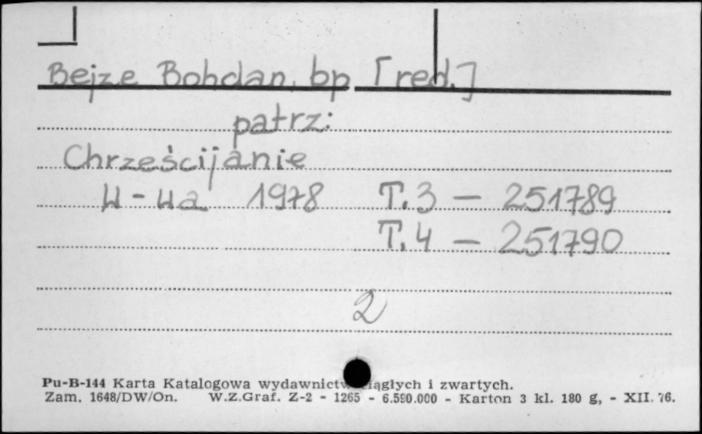 Bejze Bohdan, bp [red.]
patrz:
Chrześcijanie
W-wa 1978 T.3 — 251789
T.4 — 251790
2
Pu-B-144 Karta Katalogowa wydawnictw ciągłych i zwartych.
Zam. 1648/DW/On. W.Z.Graf. Z-2 - 1265 - 6.590.000 - Karton 3 kl. 180 g, - XII. 76.